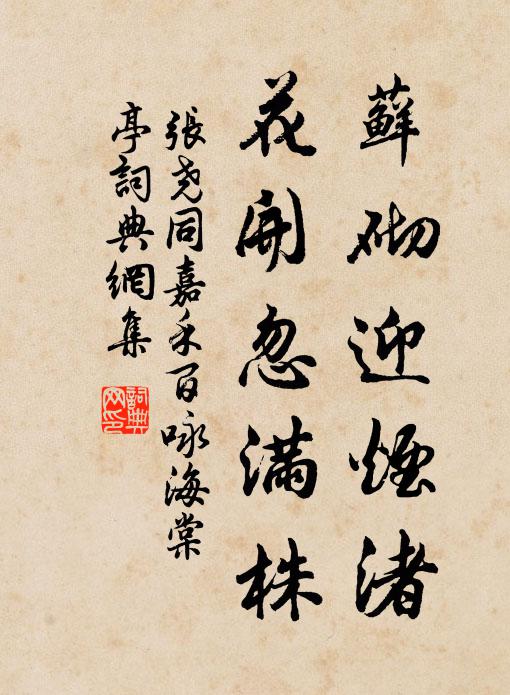 蘚砌迎煙渚
花開忽滿株
張堯同嘉禾百咏海棠
亭詞典網集
詞典
网印